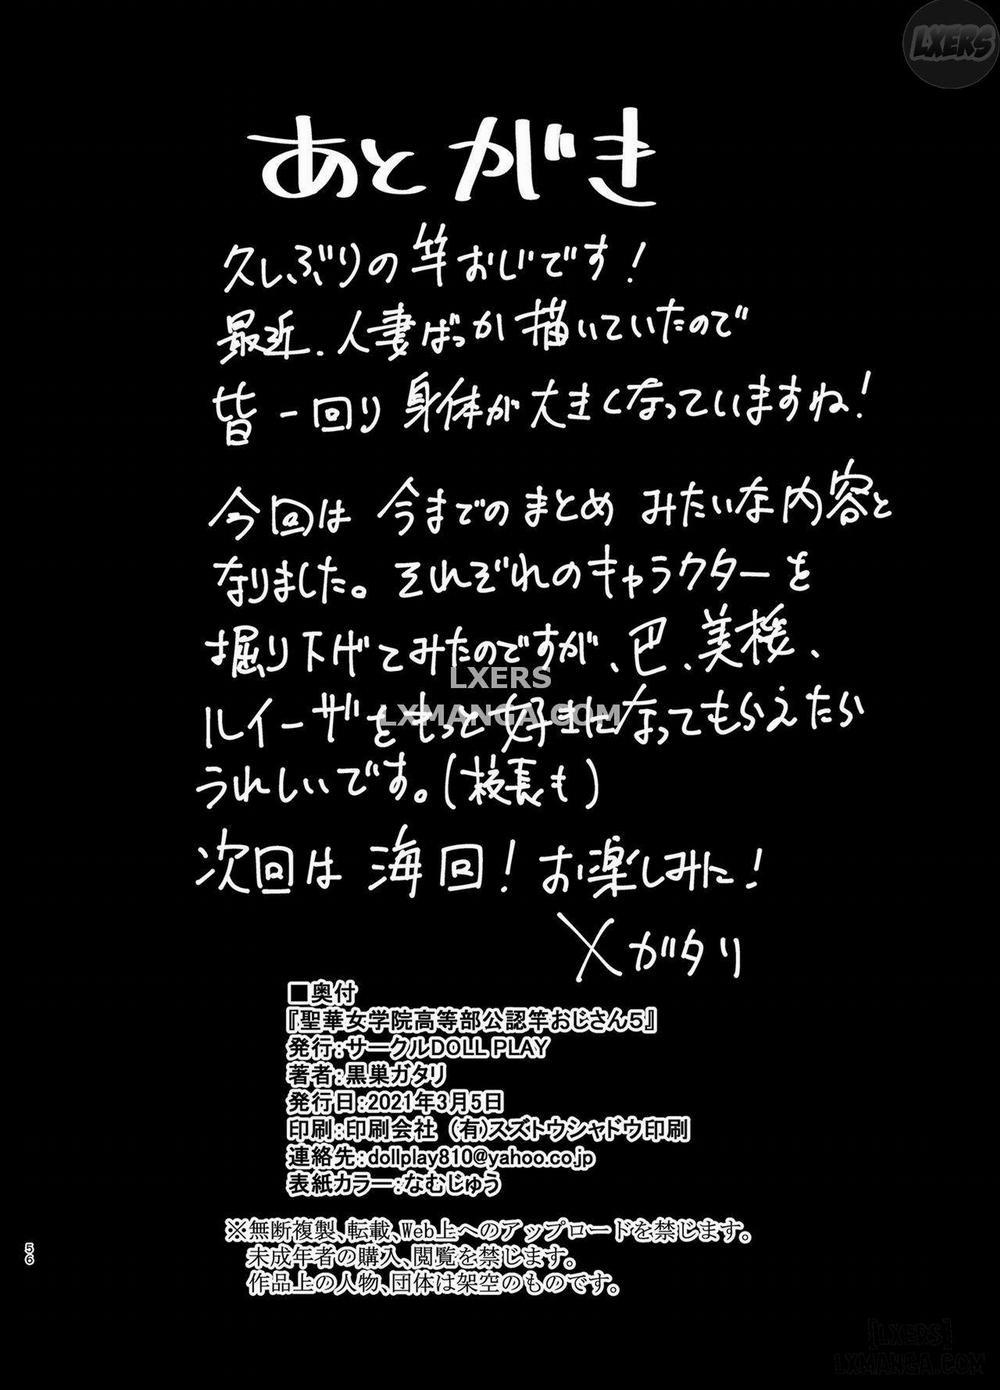 LXERS
あとがき
久しぶりの竿おじです!
最近、人妻ばっか描いていたので
皆一回り身体が大きくなっていますね!
今回は今までのまとめみたいな内容と
なりました。それぞれのキャラクターを
掘り下げてみたのですが、巴、美桜、
LXERS
ルイーザをもっと好きになってもらえたら
LXMANGA.COM
うれしいです。(校長も)
次回は海回!お楽しみに!
Xガタリ
■奥付
『聖華女学院高等部公認竿おじさん5』
発行:サークルDOLL PLAY
著者:黒巣ガタリ
発行日:2021年3月5日
印刷:印刷会社 (有)スズトウシャドウ印刷
連絡先:dollplay810@yahoo.co.jp
表紙カラー:なむじゅう
※無断複製、転載、Web上へのアップロードを禁じます。
未成年者の購入、閲覧を禁じます。
作品上の人物、団体は架空のものです。
56
[LXERS]
LXMANGA.COM